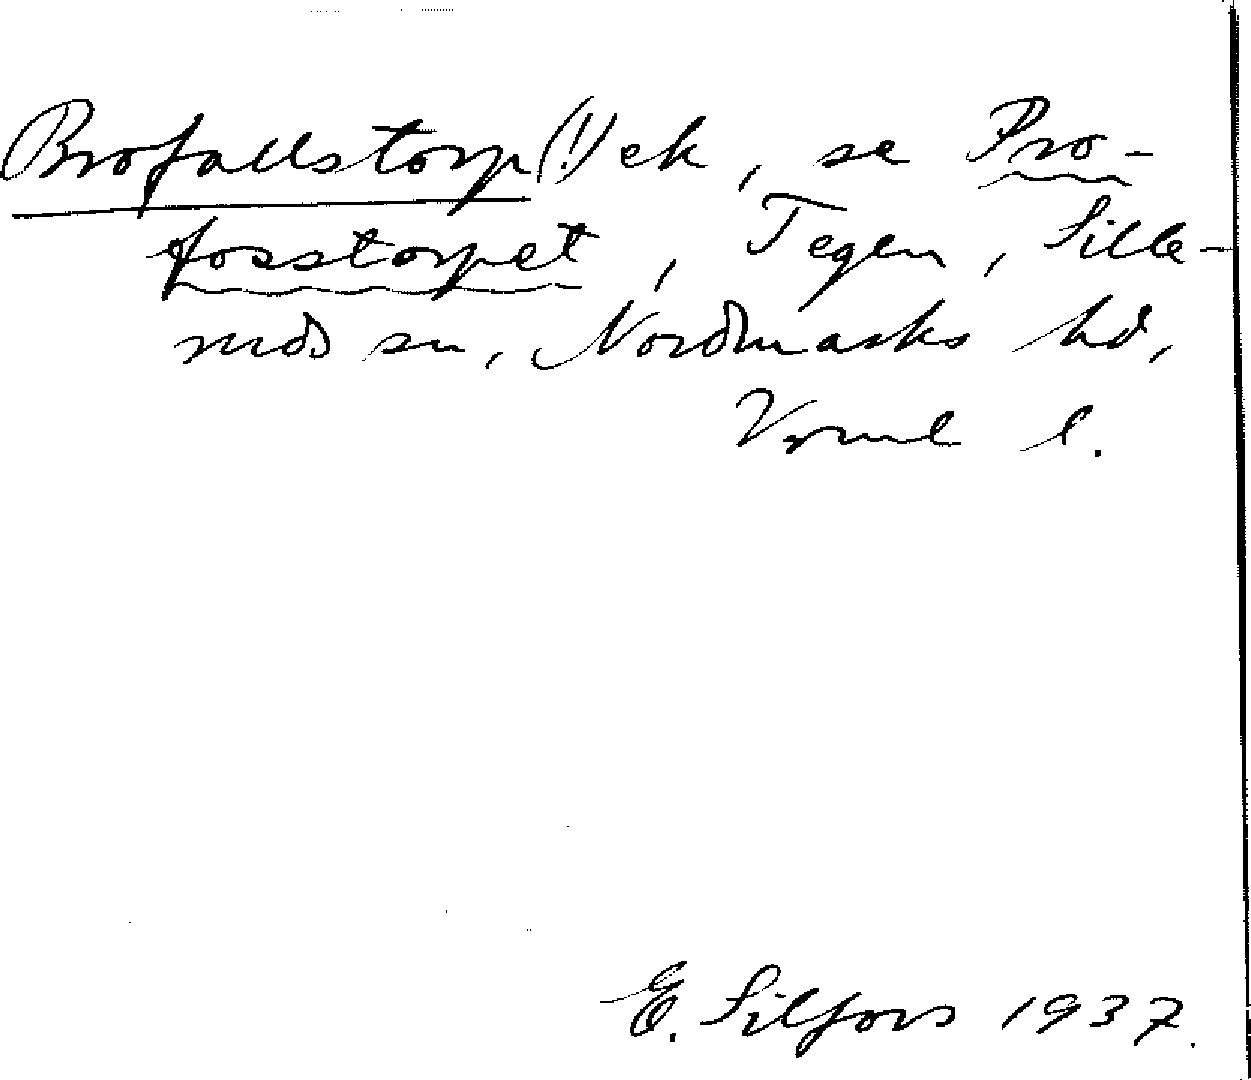 Brofallstorp(!) ek, se Pro-
fosstorpet, Tegen, Sille-
ruds sn, Nordmarks hd,
Vrml l.
E. Silfors 1937.